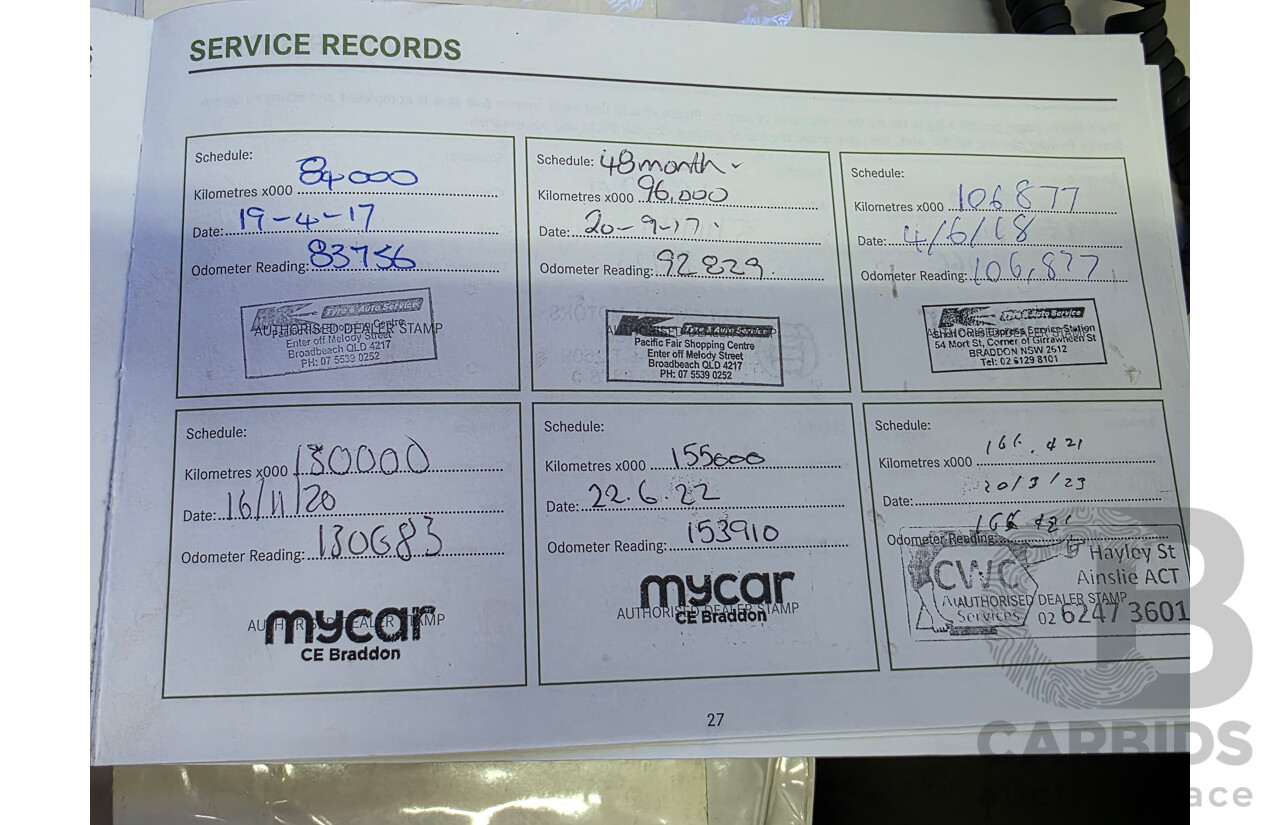 SERVICE RECORDS
Schedule:
Kilometres x000 84000
Date: 19-4-17
Odometer Reading: 83756
Tyre & Auto Service
AUTHORISED DEALER STAMP
Centre
Enter off Melody Street
Broadbeach QLD 4217
PH: 07 5539 0252
Schedule: 48 month
Kilometres x000 96,000
Date: 20-9-17
Odometer Reading: 92829
Tyre & Auto Service
Pacific Fair Shopping Centre
Enter off Melody Street
Broadbeach QLD 4217
PH: 07 5539 0252
Schedule:
Kilometres x000 106877
Date: 4/6/18
Odometer Reading: 106,877
Tyre & Auto Service
Express Service Station
54 Mort St, Corner of Girrawheen St
BRADDON NSW 2612
Tel: 02 6129 8101
Schedule:
Kilometres x000 130000
Date: 16/11/20
Odometer Reading: 130683
mycar
AUTHORISED DEALER STAMP
CE Braddon
Schedule:
Kilometres x000 155000
Date: 22.6.22
Odometer Reading: 153910
mycar
AUTHORISED DEALER STAMP
CE Braddon
Schedule:
Kilometres x000
Date: 20/3/23
Odometer Reading:
Hayley St
CWC
Ainslie ACT
AUTHORISED DEALER STAMP
Services
02 6247 3601
27
CARBIDS